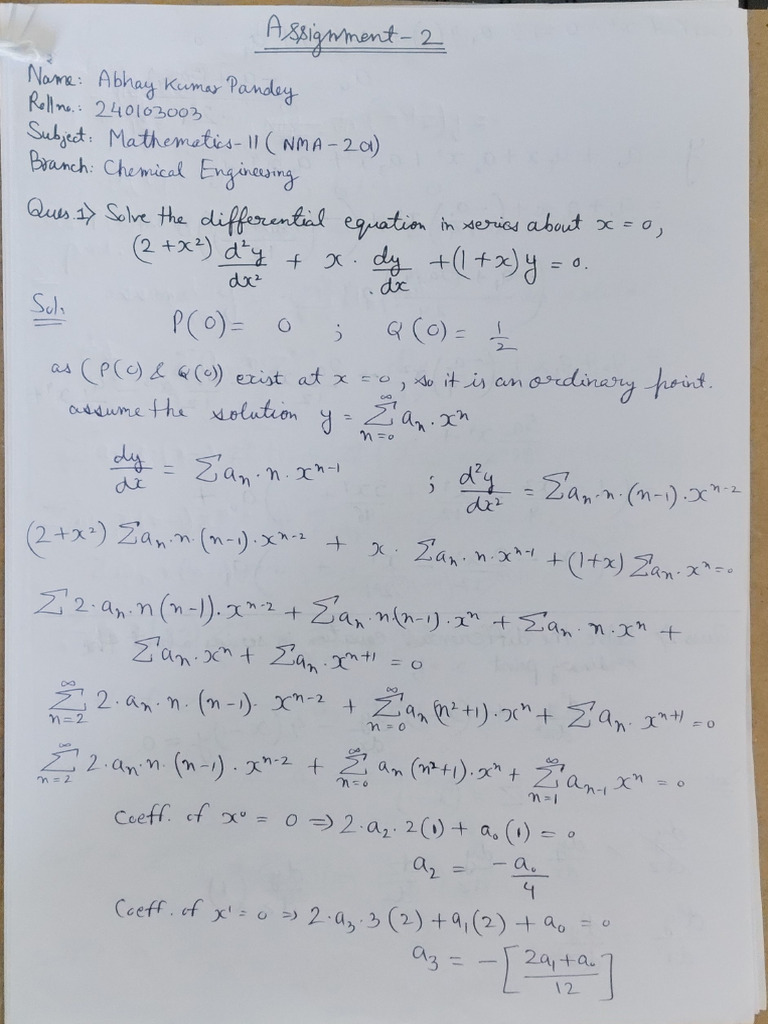 Assignment-2
Name: Abhay Kumar Pandey
Roll no.: 240103003
Subject: Mathematics-II (NMA-201)
Branch: Chemical Engineering
Ques.1> Solve the differential equation in series about x = 0,
(2+x²) d²y/dx² + x · dy/dx + (1+x)y = 0.
Sol.
P(0) = 0 ; Q(0) = 1/2
as (P(0) & Q(0)) exist at x = 0, so it is an ordinary point.
assume the solution y = ∞Σn=0 aₙ · xⁿ
dy/dx = Σaₙ · n · xⁿ⁻¹ ; d²y/dx² = Σaₙ · n · (n-1) · xⁿ⁻²
(2+x²) Σaₙ · n · (n-1) · xⁿ⁻² + x · Σaₙ · n · xⁿ⁻¹ + (1+x) Σaₙ · xⁿ = 0
Σ 2 · aₙ · n (n-1) · xⁿ⁻² + Σaₙ · n(n-1) · xⁿ + Σaₙ · n · xⁿ +
Σaₙ · xⁿ + Σaₙ · xⁿ⁺¹ = 0
∞Σn=2 2 · aₙ · n · (n-1) · xⁿ⁻² + ∞Σn=0 aₙ (n²+1) · xⁿ + Σ aₙ · xⁿ⁺¹ = 0
∞Σn=2 2 · aₙ · n · (n-1) · xⁿ⁻² + ∞Σn=0 aₙ (n²+1) · xⁿ + ∞Σn=1 aₙ₋₁ xⁿ = 0
Coeff. of x⁰ = 0 ⇒ 2 · a₂ · 2(1) + a₀(1) = 0
a₂ = -a₀/4
Coeff. of x¹ = 0 ⇒ 2 · a₃ · 3(2) + a₁(2) + a₀ = 0
a₃ = -[2a₁+a₀/12]